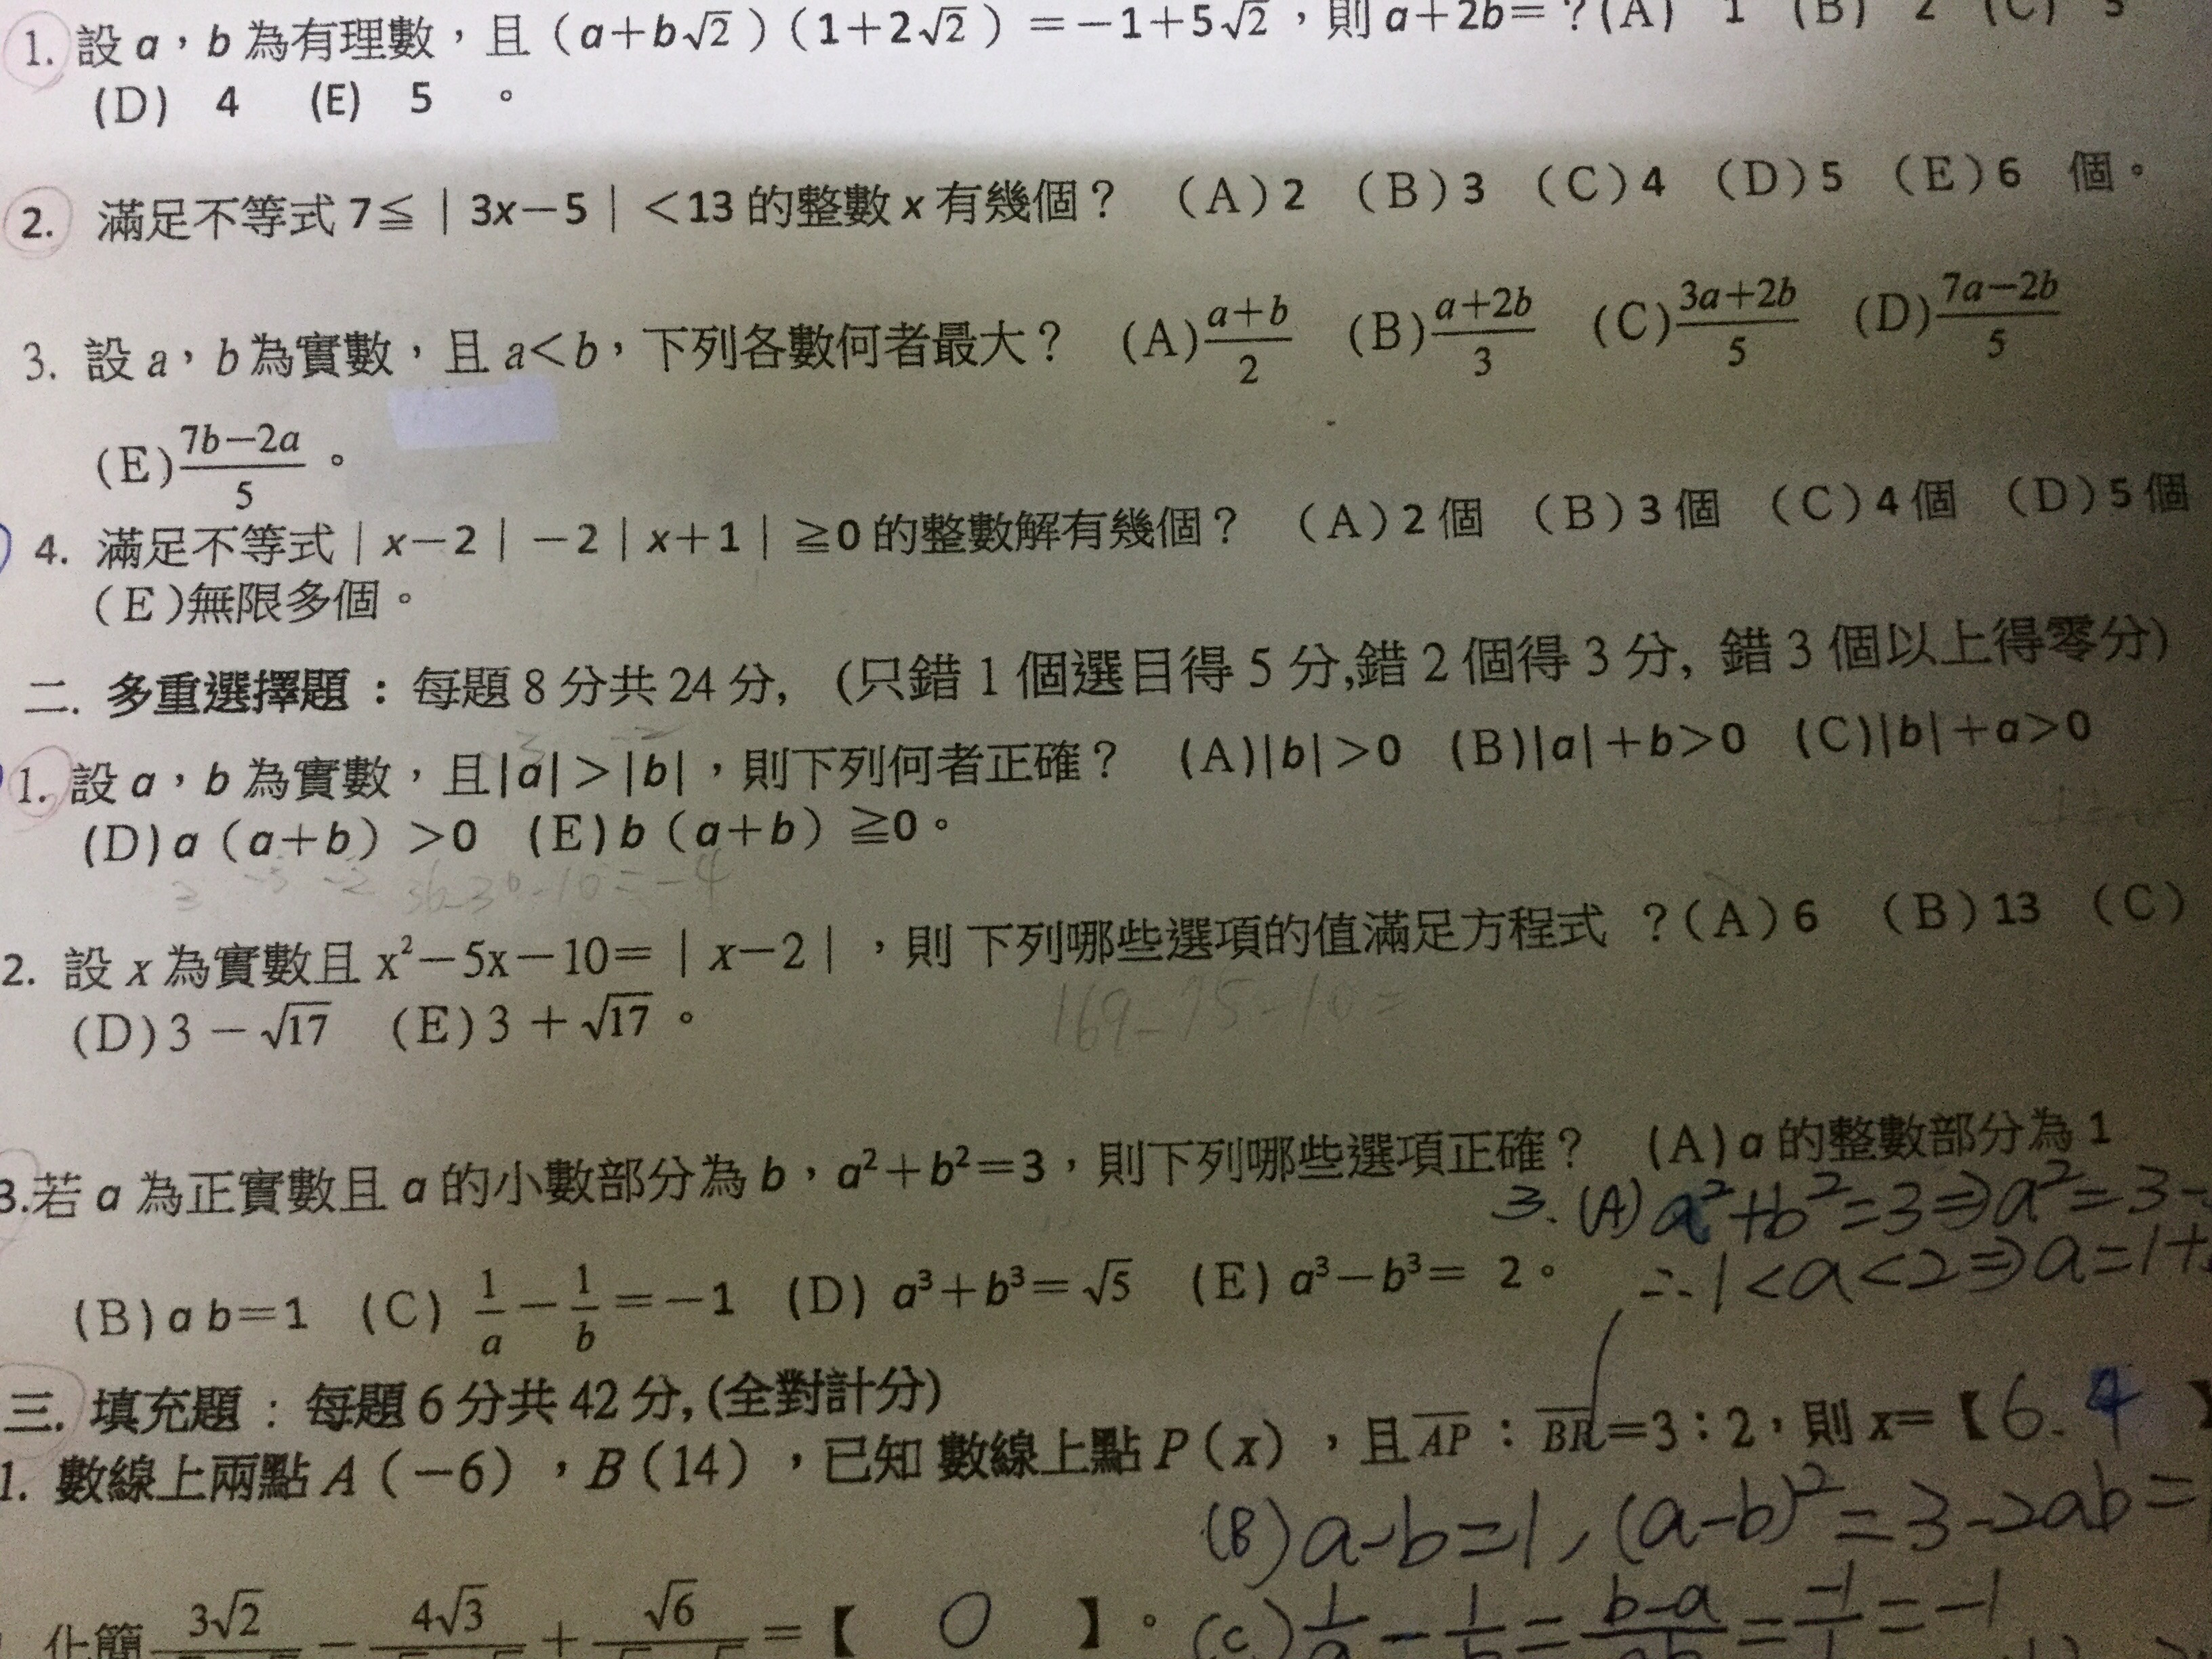 1. 設 a，b 為有理數，且（a+b√2）（1+2√2）=-1+5√2，則 a+2b=？(A) 1 (B) 2 (C) 3
(D) 4 (E) 5 。
2. 滿足不等式 7≦｜3x-5｜<13 的整數 x 有幾個？ (A)2 (B)3 (C)4 (D)5 (E)6 個。
3. 設 a，b 為實數，且 a<b，下列各數何者最大？ (A) (a+b)/2 (B) (a+2b)/3 (C) (3a+2b)/5 (D) (7a-2b)/5
(E) (7b-2a)/5 。
4. 滿足不等式｜x-2｜-2｜x+1｜≧0 的整數解有幾個？ (A)2個 (B)3個 (C)4個 (D)5個
(E)無限多個。
二. 多重選擇題：每題 8 分共 24 分, (只錯 1 個選目得 5 分,錯 2 個得 3 分, 錯 3 個以上得零分)
1. 設 a，b 為實數，且|a|>|b|，則下列何者正確？ (A)|b|>0 (B)|a|+b>0 (C)|b|+a>0
(D)a（a+b）>0 (E)b（a+b）≧0。
3 -3 -2 36-30-10=-4
2. 設 x 為實數且 x²-5x-10=｜x-2｜，則 下列哪些選項的值滿足方程式 ？(A)6 (B)13 (C)
169-75-10=
(D)3-√17 (E)3+√17 。
3.若 a 為正實數且 a 的小數部分為 b，a²+b²=3，則下列哪些選項正確？ (A)a 的整數部分為 1
3. (A) a²+b²=3⇒a²=3-
∴1<a<2⇒a=1+
(B)a b=1 (C) 1/a-1/b=-1 (D) a³+b³=√5 (E) a³-b³= 2。
三. 填充題：每題 6 分共 42 分, (全對計分)
1. 數線上兩點 A（-6），B（14），已知 數線上點 P（x），且 AP：BP=3：2，則 x=【6.4】
(B) a-b=1, (a-b)²=3-2ab=
化簡 3√2 - 4√3 + √6 =【 0 】。
(C) 1/a-1/b=(b-a)/ab=-1/1=-1